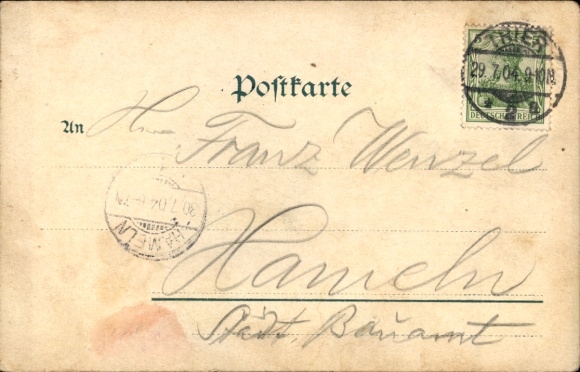 TRIER
29.7.04.9-10N.
DEUTSCHES REICH
Postkarte
An Herrn Franz Wenzel
30.7.04.6-7N
HAMELN
Hameln
Städt. Bauamt